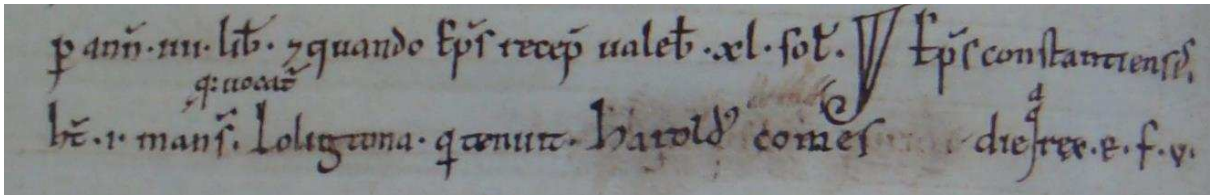 ꝑ ann̄·iiii·lib̄·⁊quando Ep̄s recep̄ ualeƀ·xl·sol̄. Ep̄s constantiensis,
q̄ uocat̄
ht̄·i·mans̄·Lolugtona·q̄ tenuit·Harold᷒ comes die q̊ rex·e·f·v·